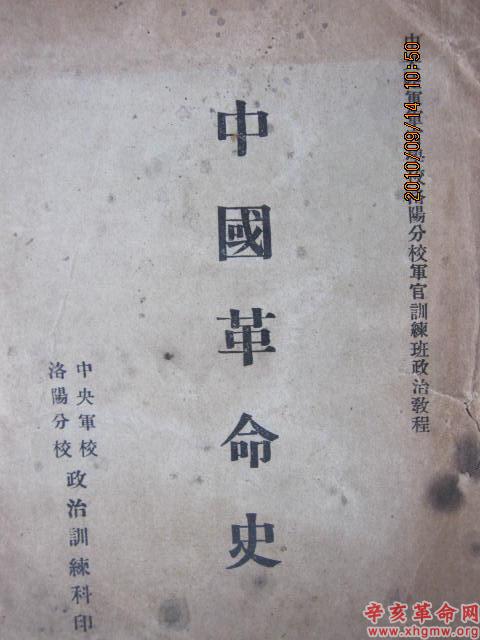 中軍軍學校洛陽分校軍官訓練班政治教程
中國革命史
中央軍校
洛陽分校
政治訓練科印
2010/09/14 10:50
辛亥革命网
www.xhgmw.org